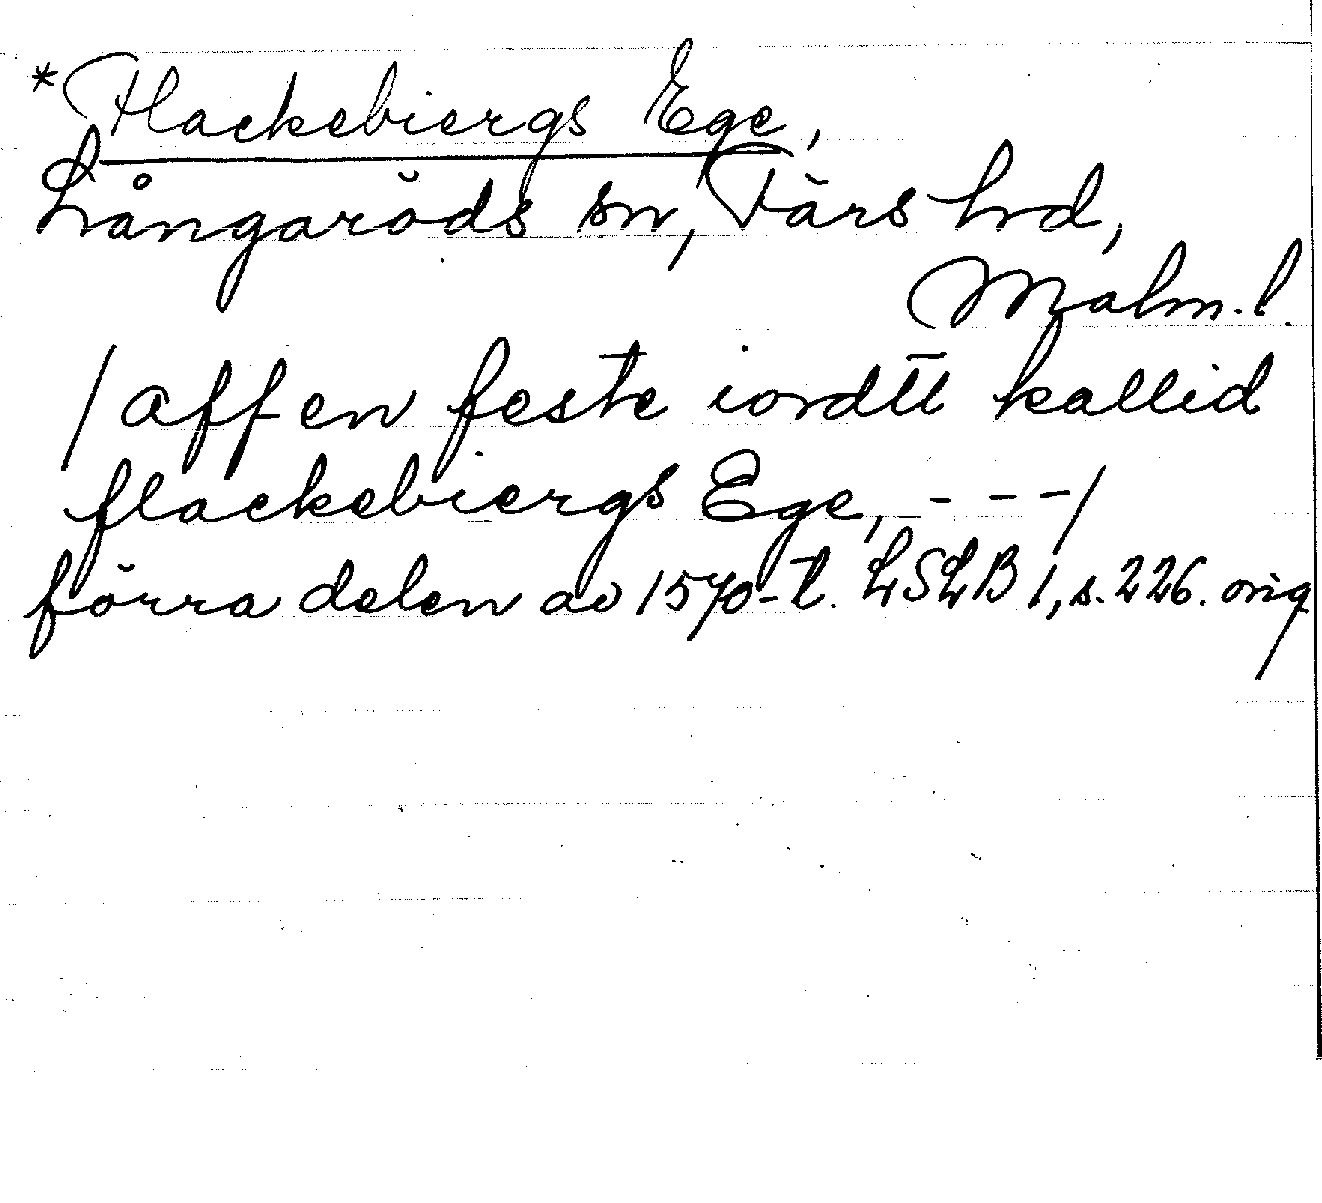 *Flackebiergs Ege,
Långaröds sn, Färs hrd,
Malm. l.
/aff en feste iordtt kallid
flackebiergs Ege, - - -/
förra delen av 1570-t. LSLB 1, s. 226. orig